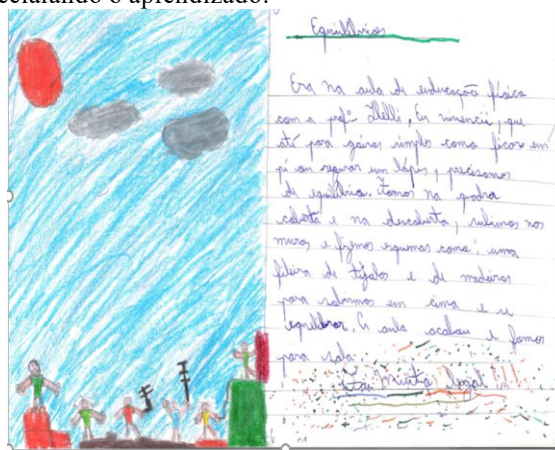 acelarando o aprendizado.
Equilíbrios
Era na aula di enducação física
com a profª Ilelli, Eu vivenciei, que
até para coisas simples como ficar em
pé ou segurar um lápis, precisamos
di equilíbrio. Fomos na quadra
coberta e na descoberta, subimos nos
muros e fizemos esquemas como: uma
fileira di tijolos e di madeiras
para subirmos em cima e se
equilibrar. A aula acabou e fomos
para sala.
Muita legal